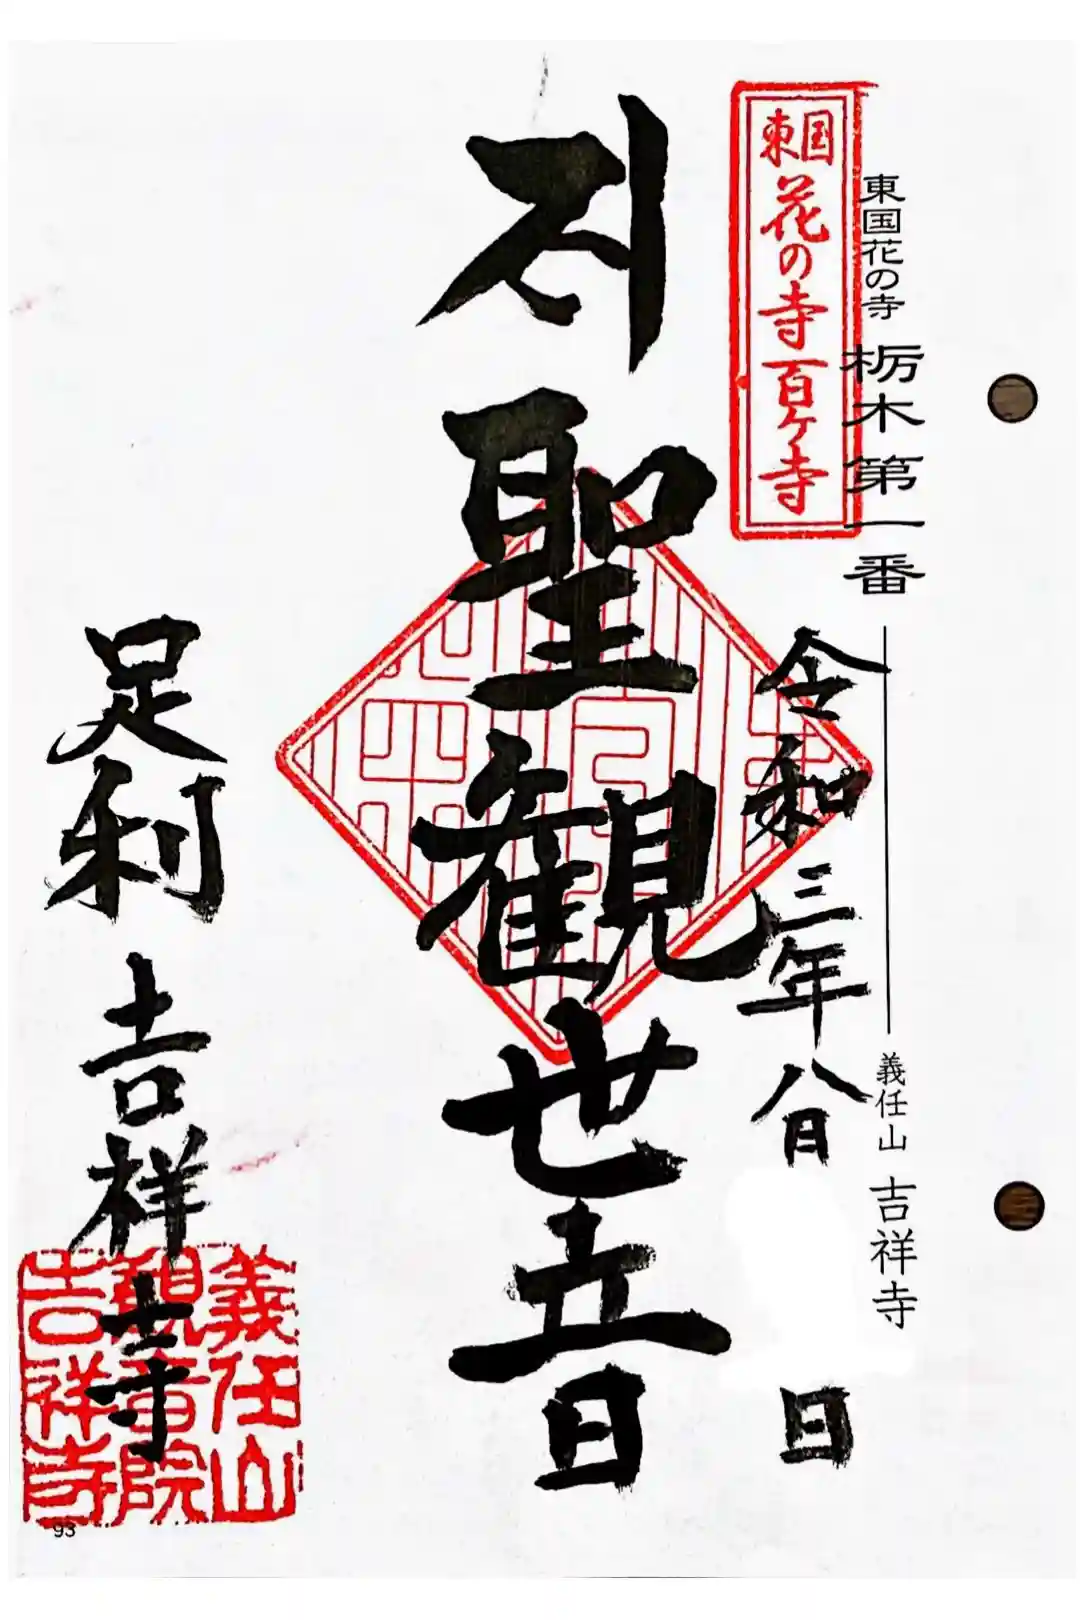 東国花の寺 栃木第一番 義任山 吉祥寺
東国花の寺百ヶ寺
令和三年八月 日
聖観世音
足利 吉祥寺
義任山
觀音院
吉祥寺
93